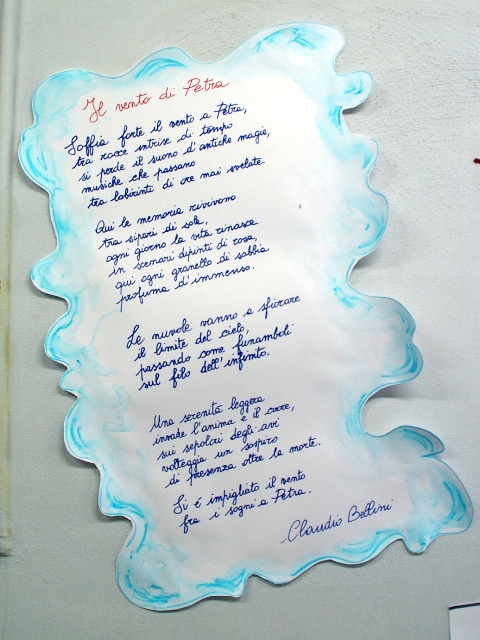 Il vento di Petra
Soffia forte il vento a Petra,
tra rocce intrise di tempo
si perde il suono d'antiche magie,
musiche che passano
tra labirinti di ore mai svelate.
Qui le memorie rivivono
tra sipari di sole,
ogni giorno la vita rinasce
in scenari dipinti di rosa,
qui ogni granello di sabbia
profuma d'immenso.
Le nuvole vanno a sfiorare
il limite del cielo,
passando come funamboli
sul filo dell'infinito.
Una serenità leggera
invade l'anima e il cuore,
sui sepolcri degli avi
volteggia un sospiro
di presenza oltre la morte.
Si é impigliato il vento
fra i sogni a Petra.
Claudio Bellini